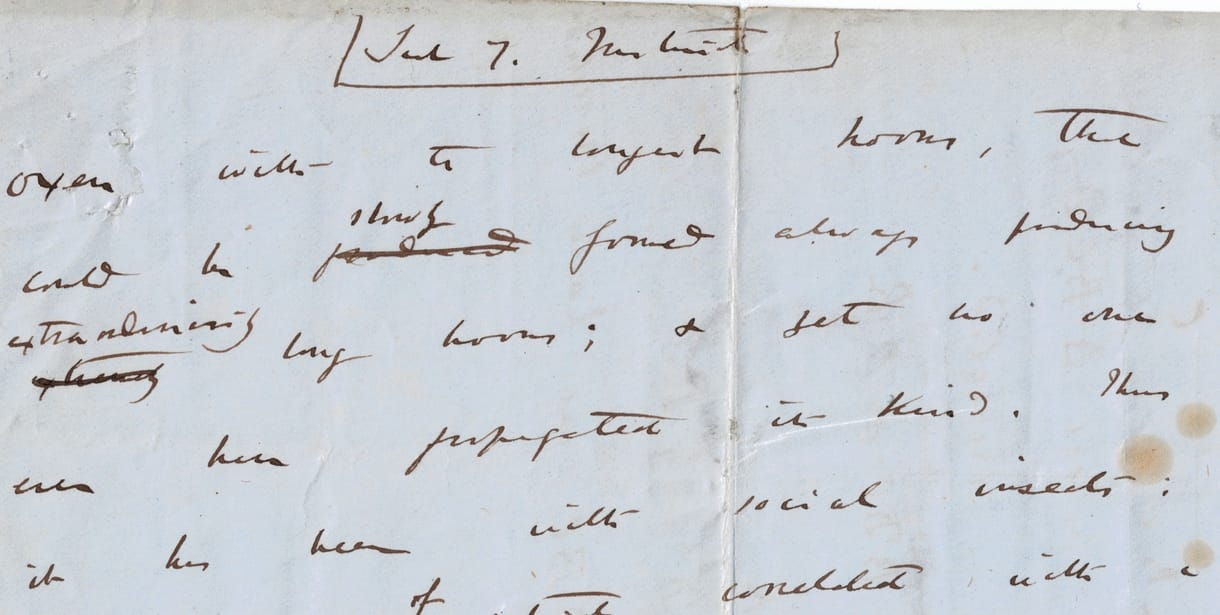 [Sect 7. Instinct]
oxen with the longest horns, that
slowly
could be produced formed always producing
extraordinarily long horns; & yet no one
extremely
ever have propagated its kind. Thus
it has been with social insects:
of correlated with a